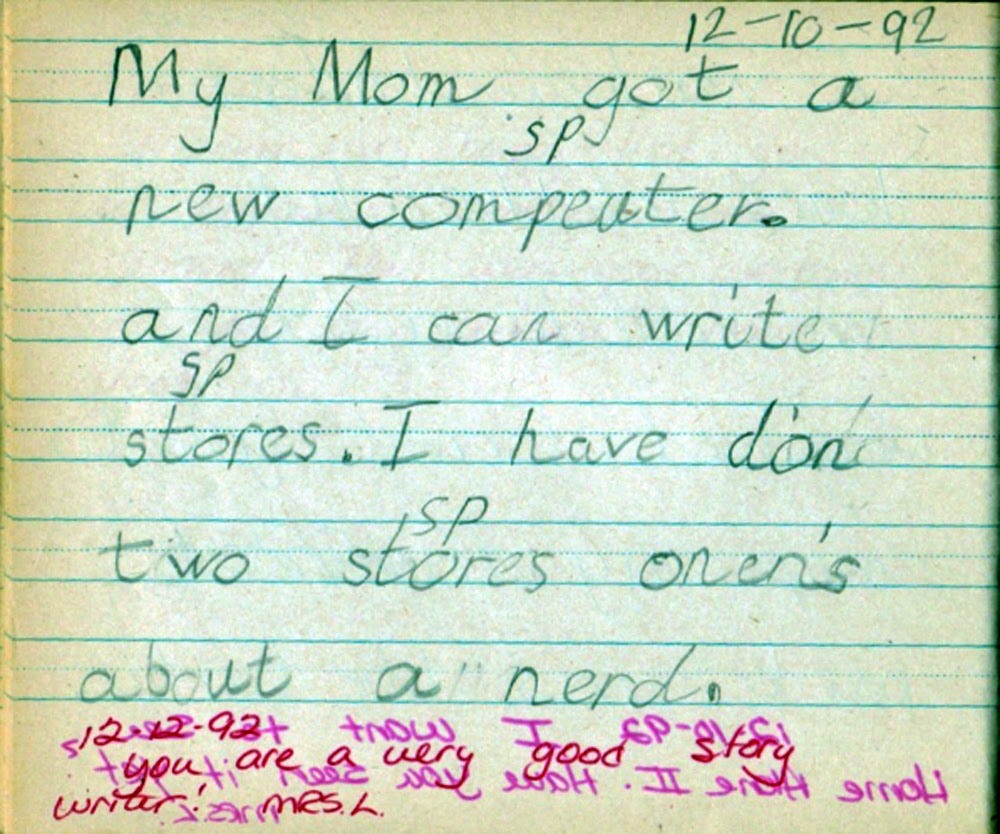 12-10-92
My Mom got a
sp
new compeuter.
and I can write
sp
stores. I have don
sp
two stores onen's
about a nerd.
12-12-92
you are a very good story
writer! MRS.L.